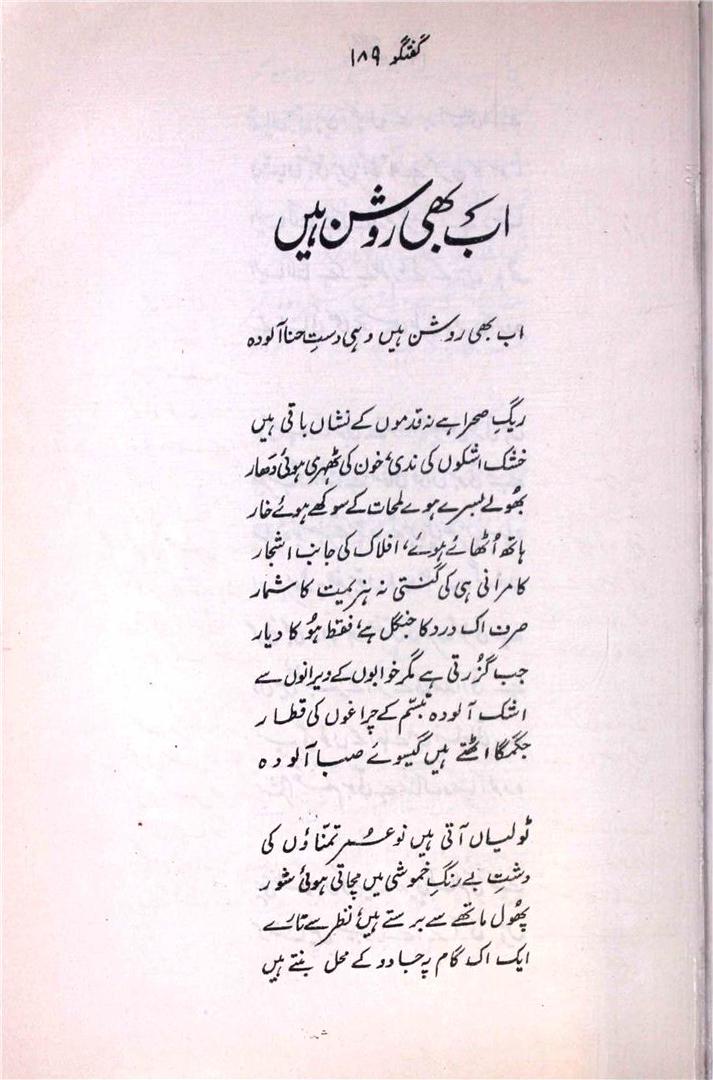 گفتگو ۱۸۹
اب بھی روشن ہیں
اب بھی روشن ہیں وہی دستِ حنا آلودہ
ریگِ صحرا ہے نہ قدموں کے نشاں باقی ہیں
خشک اشکوں کی ندی، خون کی ٹھہری ہوئی دھار
بھولے بسرے ہوے لمحات کے سوکھے ہوئے خار
ہاتھ اُٹھائے ہوئے، افلاک کی جانب اشجار
کامرانی ہی کی گنتی نہ ہزیمت کا شمار
صرف اک درد کا جنگل ہے، فقط ہُو کا دیار
جب گزُرتی ہے مگر خوابوں کے ویرانوں سے
اشک آلودہ تبسّم کے چراغوں کی قطار
جگمگا اٹھتے ہیں گیسوئے صبا آلودہ
ٹولیاں آتی ہیں نوعمر تمنّاؤں کی
دشتِ بے رنگِ خموشی میں مچاتی ہوئی شور
پھُول ماتھے سے برستے ہیں، نظر سے تارے
ایک اک گام پہ جادو کے محل بنتے ہیں